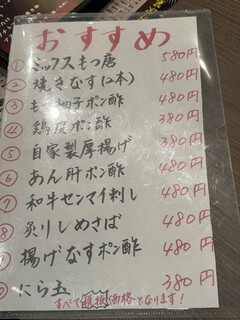 おすすめ
① ミックスもつ唐 580円
② 焼きなす(2本) 480円
③ もつ柚子ポン酢 380円
④ 鶏皮ポン酢 380円
⑤ 自家製厚揚げ 480円
⑥ あん肝ポン酢 480円
⑦ 和牛センマイ刺し 480円
⑧ 炙りしめさば 480円
⑨ 揚げなすポン酢 480円
にら玉 380円
すべて税抜価格となります!